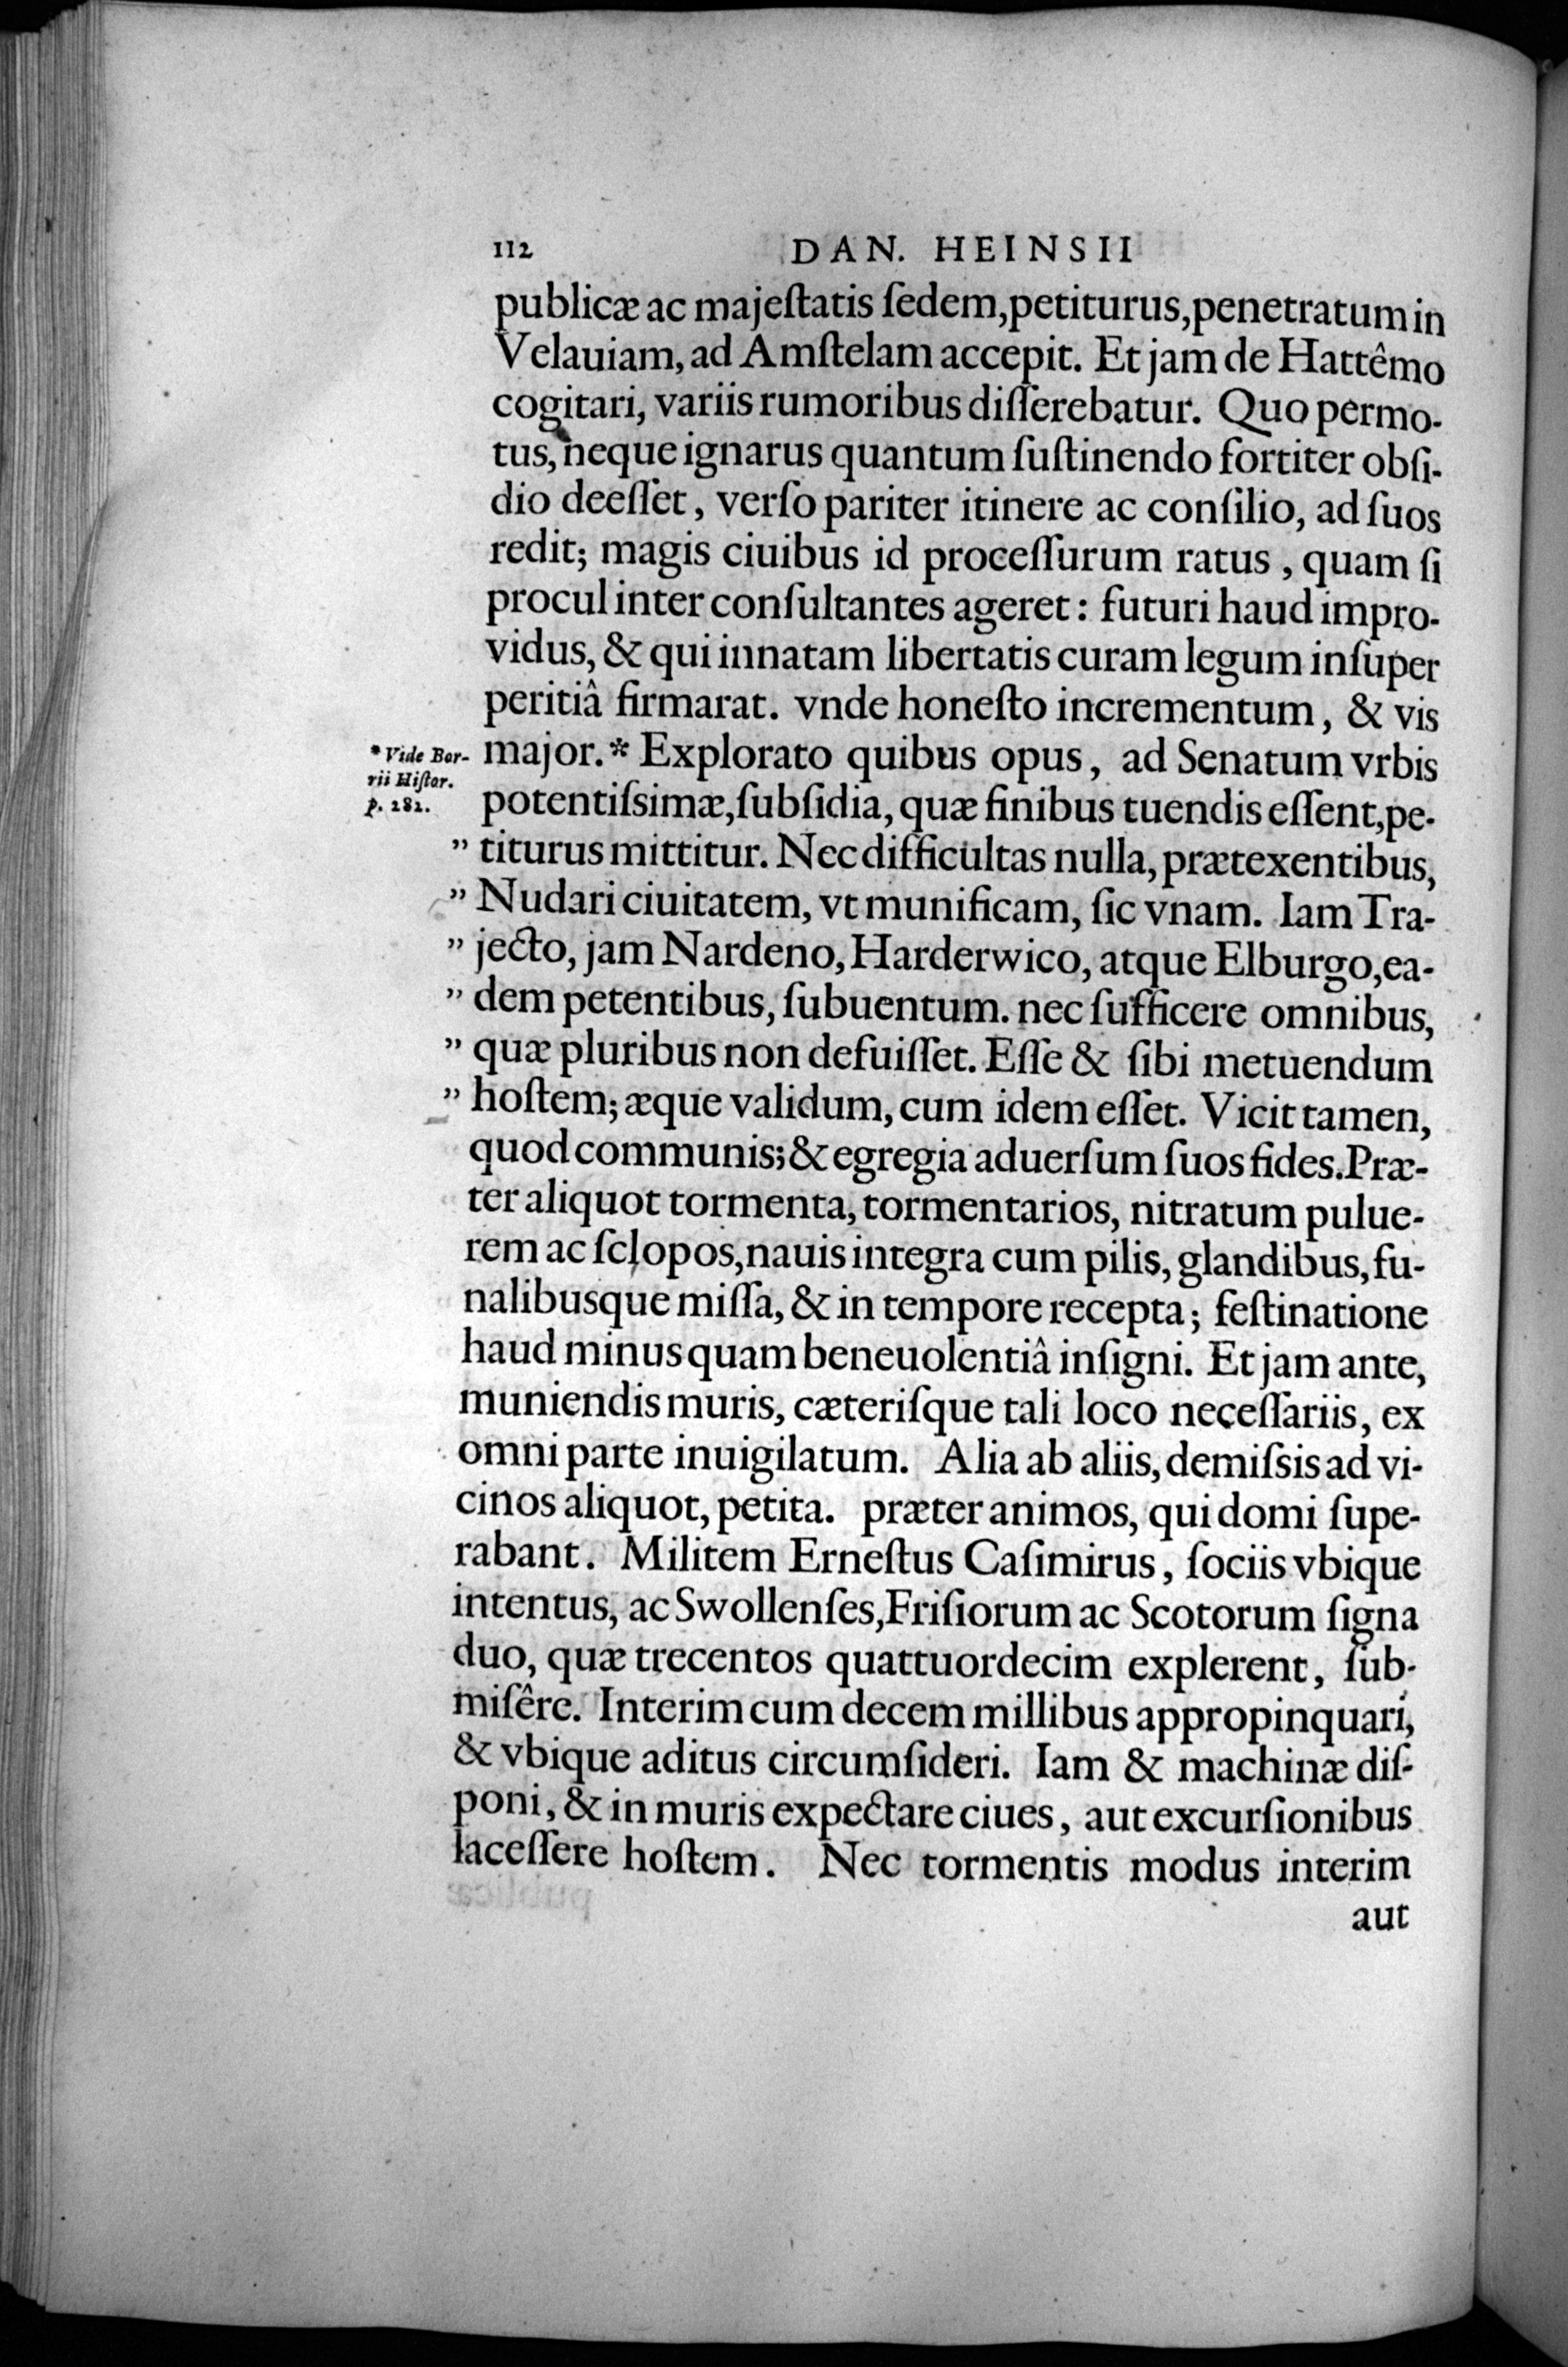 112 DAN. HEINSII
publicæ ac majeſtatis ſedem,petiturus,penetratum in
Velauiam, ad Amſtelam accepit. Et jam de Hattêmo
cogitari, variis rumoribus diſſerebatur. Quo permo-
tus, neque ignarus quantum ſuſtinendo fortiter obſi-
dio deeſſet, verſo pariter itinere ac conſilio, ad ſuos
redit; magis ciuibus id proceſſurum ratus, quam ſi
procul inter conſultantes ageret: futuri haud impro-
vidus, & qui innatam libertatis curam legum inſuper
peritiâ firmarat. vnde honeſto incrementum, & vis
major.* Explorato quibus opus, ad Senatum vrbis
* Vide Bor-
rii Hiſtor.
p. 282.
potentiſsimæ,ſubſidia, quæ finibus tuendis eſſent,pe-
” titurus mittitur. Nec difficultas nulla, prætexentibus,
” Nudari ciuitatem, vt munificam, ſic vnam. Iam Tra-
” jecto, jam Nardeno, Harderwico, atque Elburgo,ea-
” dem petentibus, ſubuentum. nec ſufficere omnibus,
” quæ pluribus non defuiſſet. Eſſe & ſibi metuendum
” hoſtem; æque validum, cum idem eſſet. Vicit tamen,
quod communis; & egregia aduerſum ſuos fides. Præ-
ter aliquot tormenta, tormentarios, nitratum pulue-
rem ac ſclopos,nauis integra cum pilis, glandibus, fu-
nalibusque miſſa, & in tempore recepta; feſtinatione
haud minus quam beneuolentiâ inſigni. Et jam ante,
muniendis muris, cæteriſque tali loco neceſſariis, ex
omni parte inuigilatum. Alia ab aliis, demiſsis ad vi-
cinos aliquot, petita. præter animos, qui domi ſupe-
rabant. Militem Erneſtus Caſimirus, ſociis vbique
intentus, ac Swollenſes,Friſiorum ac Scotorum ſigna
duo, quæ trecentos quattuordecim explerent, ſub-
miſêre. Interim cum decem millibus appropinquari,
& vbique aditus circumſideri. Iam & machinæ diſ-
poni, & in muris expectare ciues, aut excurſionibus
laceſſere hoſtem. Nec tormentis modus interim
aut